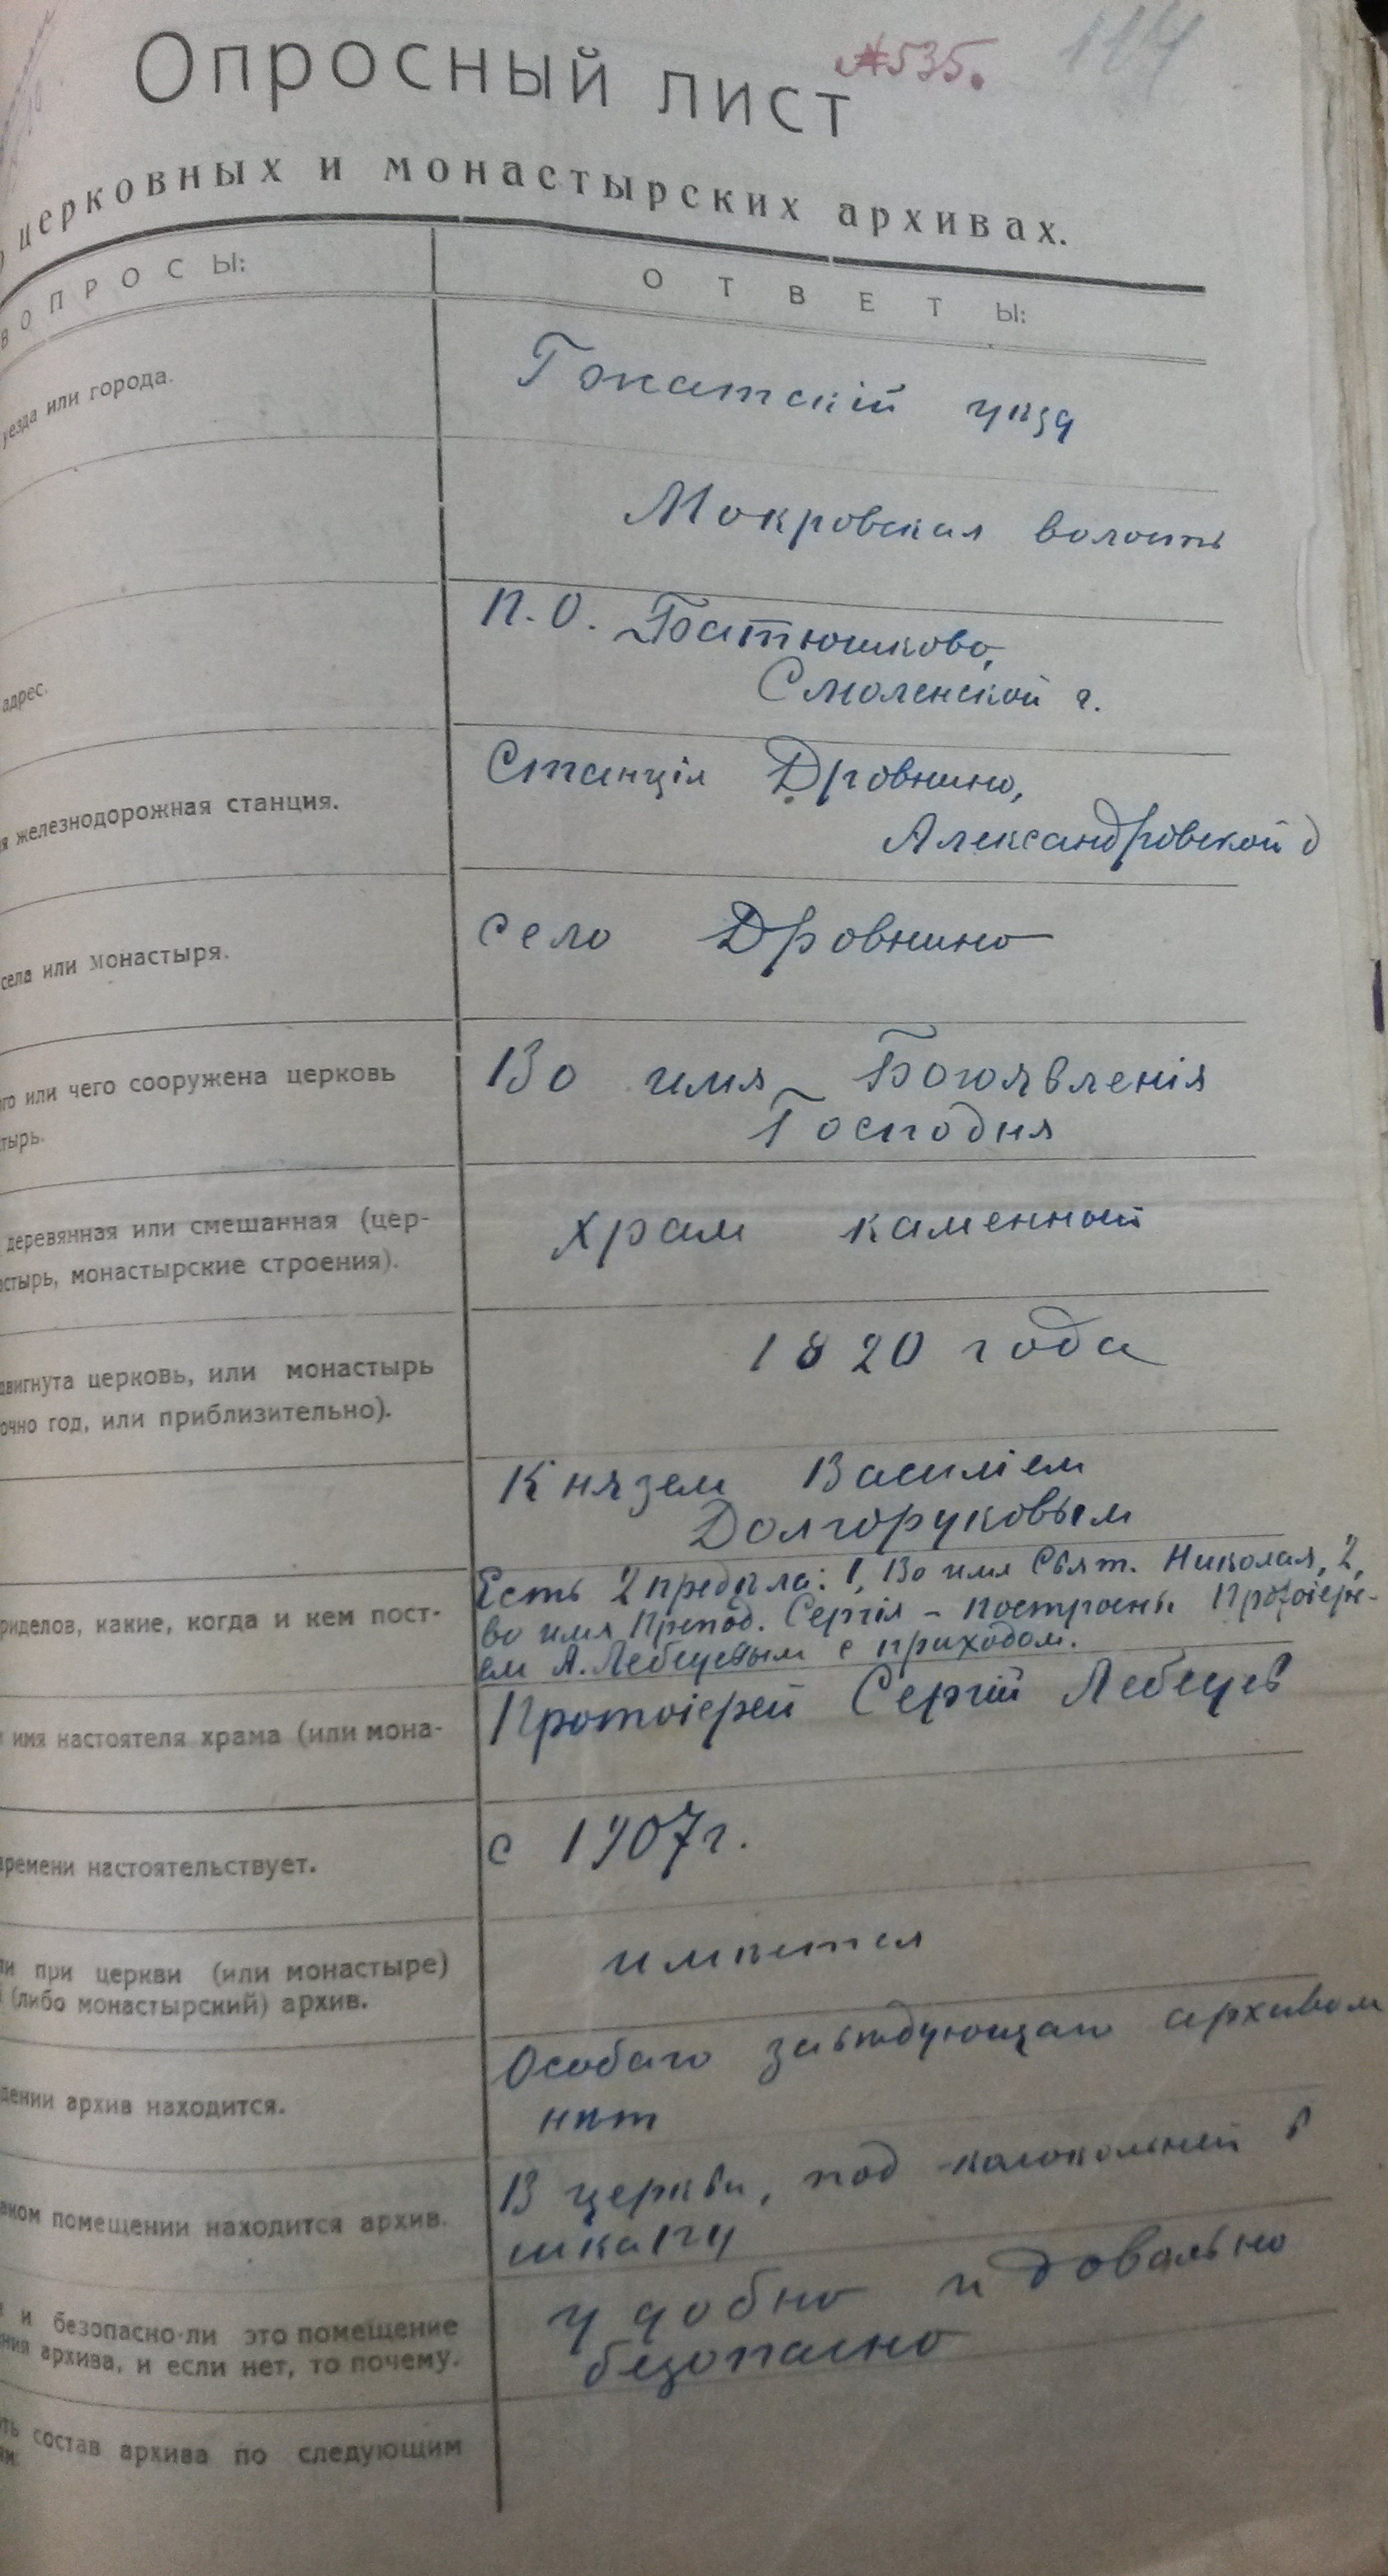 Опросный лист
№535.
114
церковных и монастырских архивах.
ВОПРОСЫ:
ОТВЕТЫ:
уезда или города.
Гжатскій уѣзд
Мокровская волость
адрес.
П.О. Батюшково,
Смоленской г.
железнодорожная станция.
Станція Дровнино,
Александровской д
села или монастыря.
село Дровнино
или чего сооружена церковь
Во имя Богоявленія
Господня
деревянная или смешанная (цер-
монастырские строения).
храм каменный
церковь, или монастырь
год, или приблизительно).
1820 года
Князем Василіем
Долгоруковым
какие, когда и кем пост-
Есть 2 придѣла: 1, Во имя Свят. Николая, 2,
во имя Препод. Сергія – построены Протоіере-
ем А. Лебецевым с приходом.
имя настоятеля храма (или мона-
Протоіерей Сергій Лебецев
времени настоятельствует.
с 1907 г.
при церкви (или монастыре)
(либо монастырский) архив.
имѣется
архив находится.
Особаго завѣдующаго архивом
нѣт
помещении находится архив.
В церкви, под колокольней в
шкапу
и безопасно-ли это помещение
архива, и если нет, то почему.
удобно и довольно
безопасно
состав архива по следующим